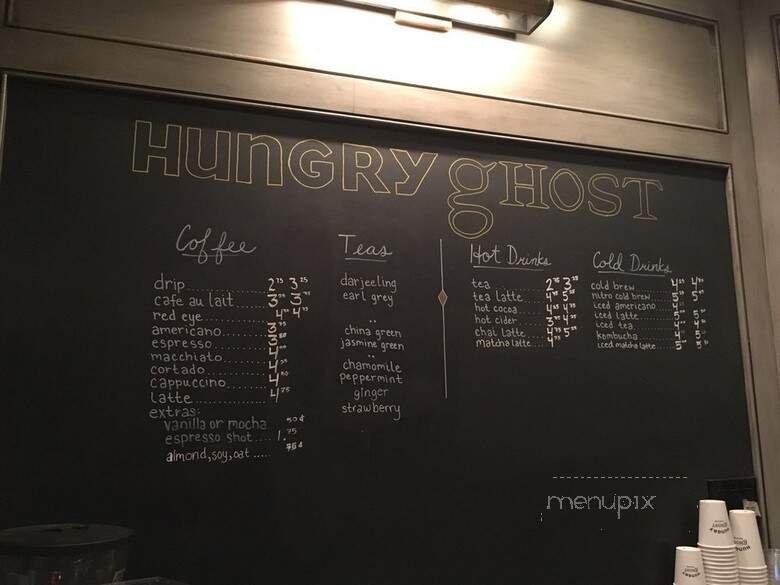 HUNGRY gHOST
Coffee
drip 2.75 3.25
cafe au lait 3
red eye 4
americano 3
espresso 3
macchiato 4
cortado 4
cappuccino 4
latte 4.75
extras:
vanilla or mocha 50¢
espresso shot 1.75
almond, soy, oat 75¢
Teas
darjeeling
earl grey
..
china green
jasmine green
..
chamomile
peppermint
ginger
strawberry
Hot Drinks
tea 2 3
tea latte 4 5
hot cocoa 4 4
hot cider 3 4
chai latte 4 5
matcha latte 4
Cold Drinks
cold brew 4 4
nitro cold brew 5
iced americano 4
iced latte 5
iced tea 4
kombucha 5
iced matcha latte 5
menupix
HUNGRY
GHOST